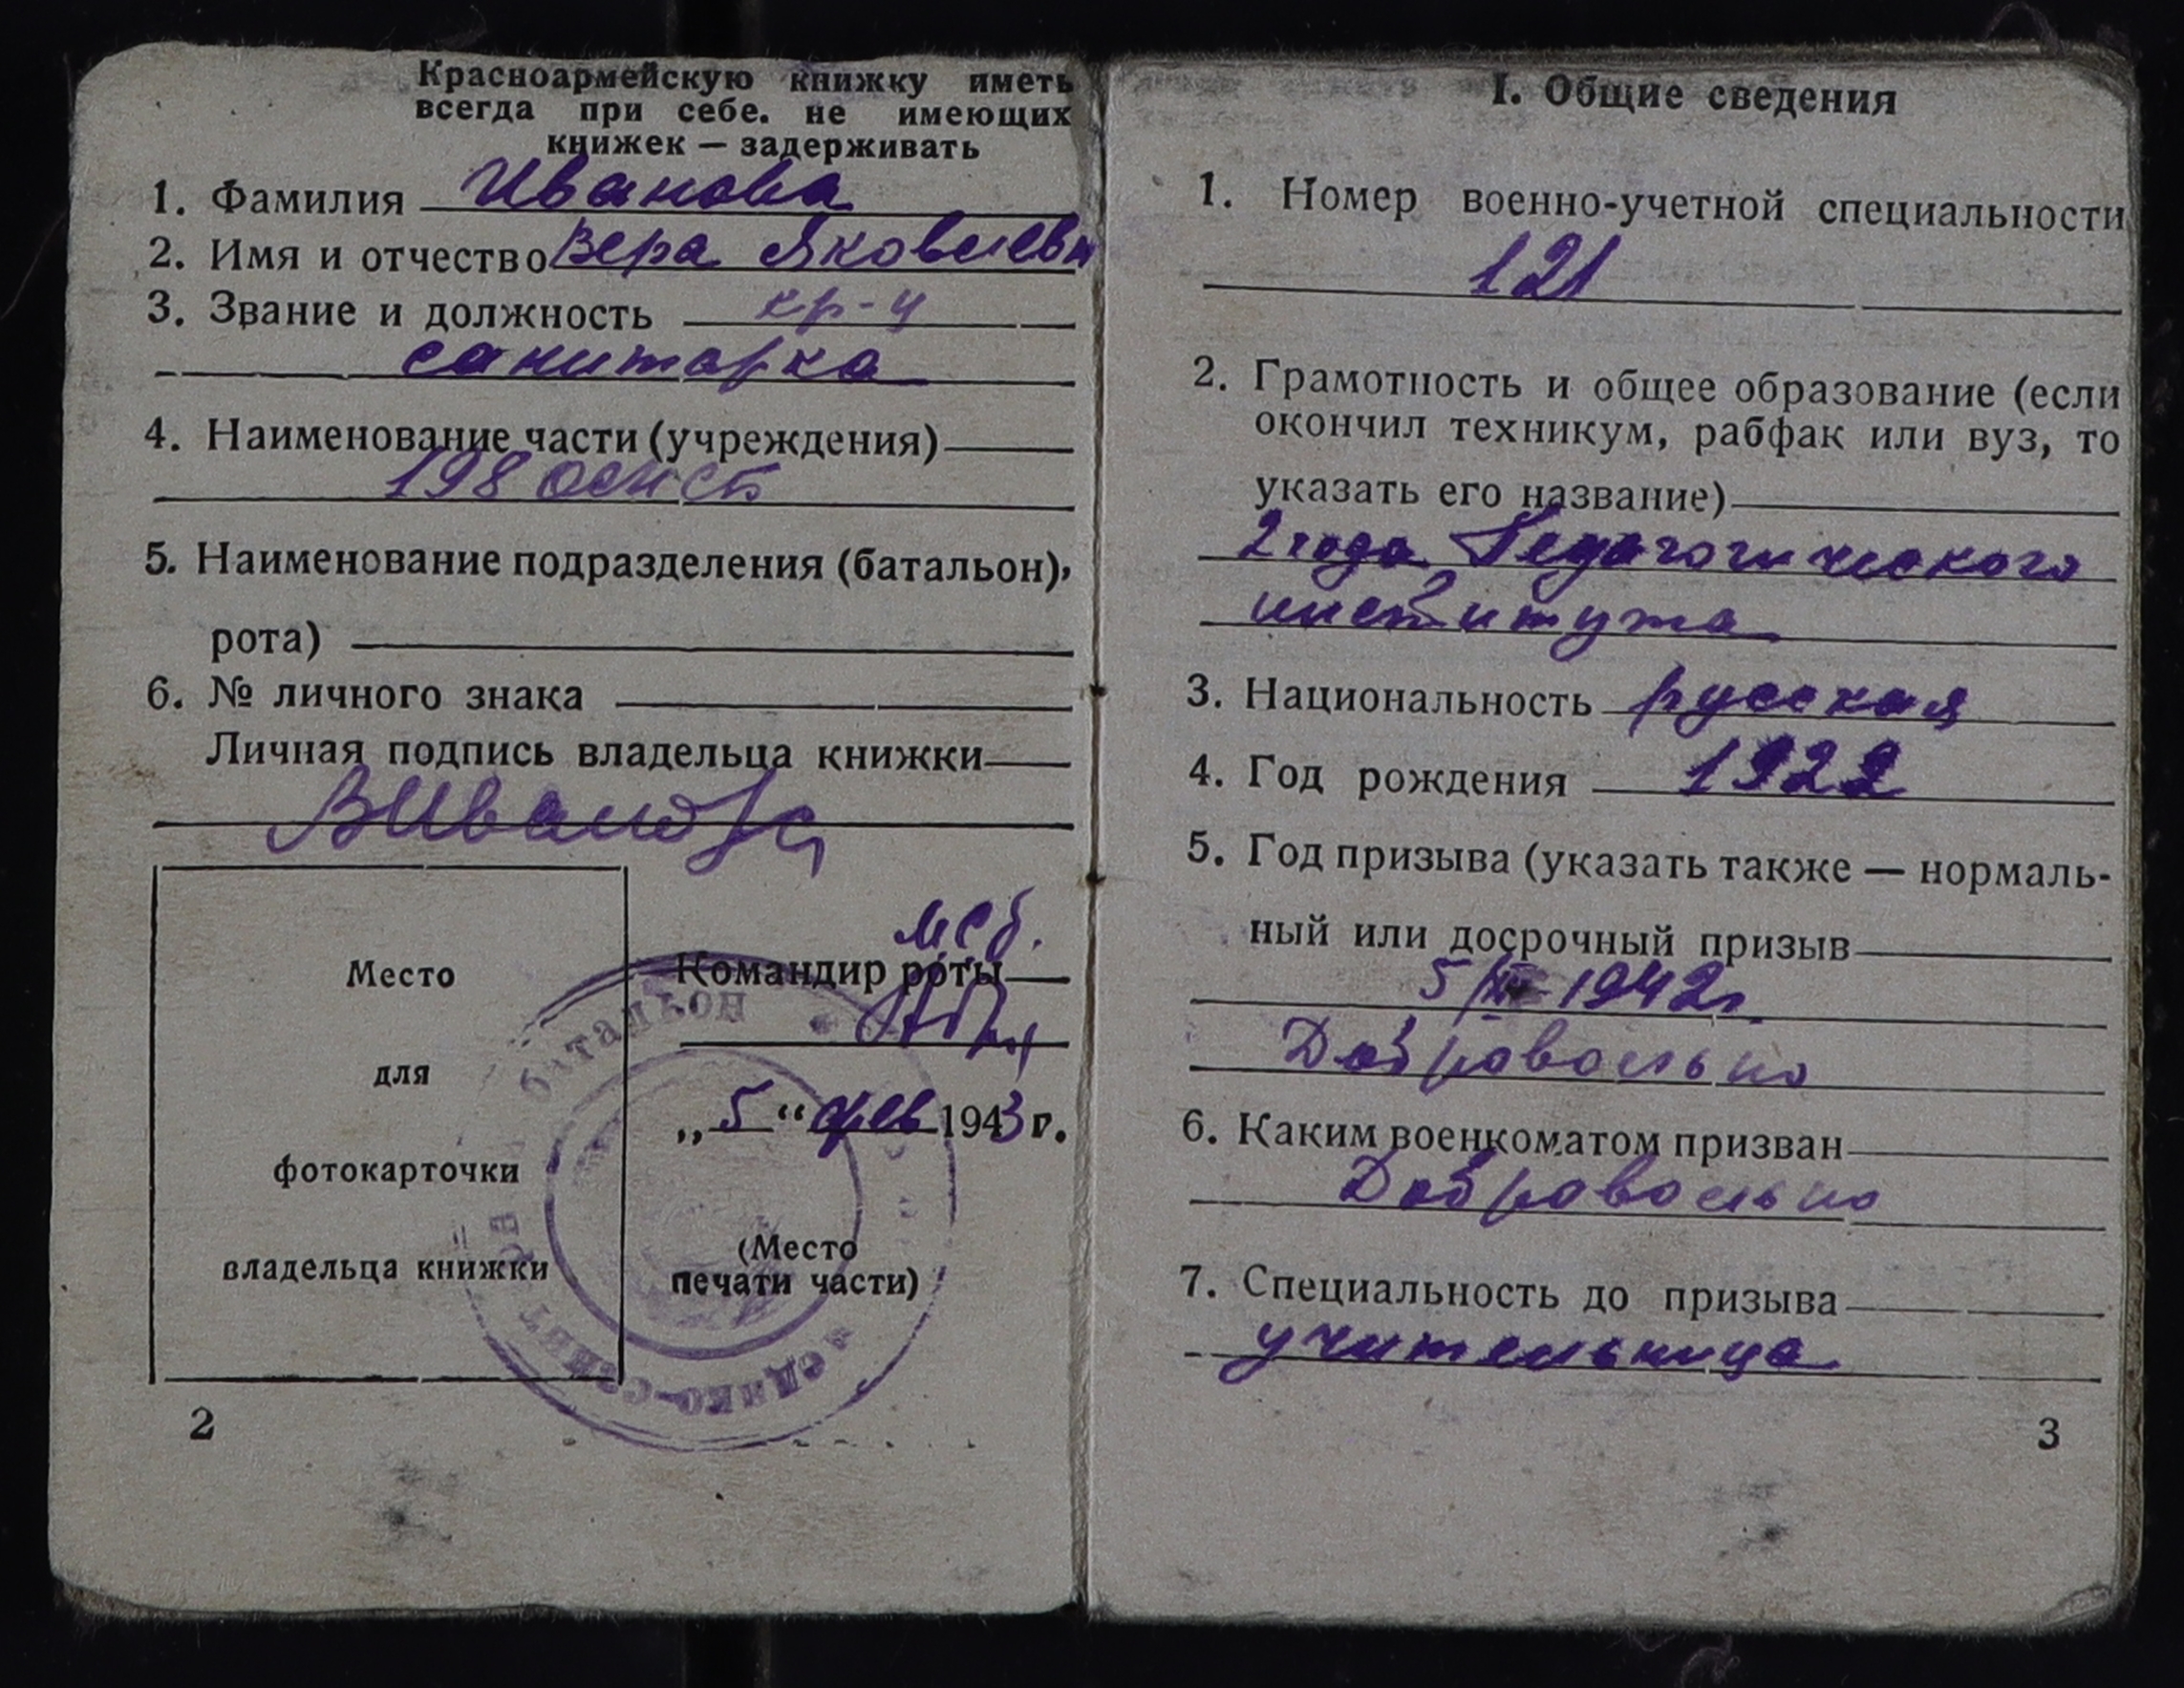 Красноармейскую книжку иметь
всегда при себе. не имеющих
книжек — задерживать
1. Фамилия Иванова
2. Имя и отчество Вера Яковлевн
3. Звание и должность кр-ц
санитарка
4. Наименование части (учреждения)
198
5. Наименование подразделения (батальон),
рота)
6. № личного знака
Личная подпись владельца книжки
ВИванова
Место
для
фотокарточки
владельца книжки
мсб.
Командир роты
„5“ фев 1943 г.
(Место
печати части)
батальон
медико-санит
2
I. Общие сведения
1. Номер военно-учетной специальности
121
2. Грамотность и общее образование (если
окончил техникум, рабфак или вуз, то
указать его название)
2 года Педагогического
института
3. Национальность русская
4. Год рождения 1922
5. Год призыва (указать также — нормаль-
ный или досрочный призыв
5 1942г.
Добравольно
6. Каким военкоматом призван
Добравольно
7. Специальность до призыва
учительница
3